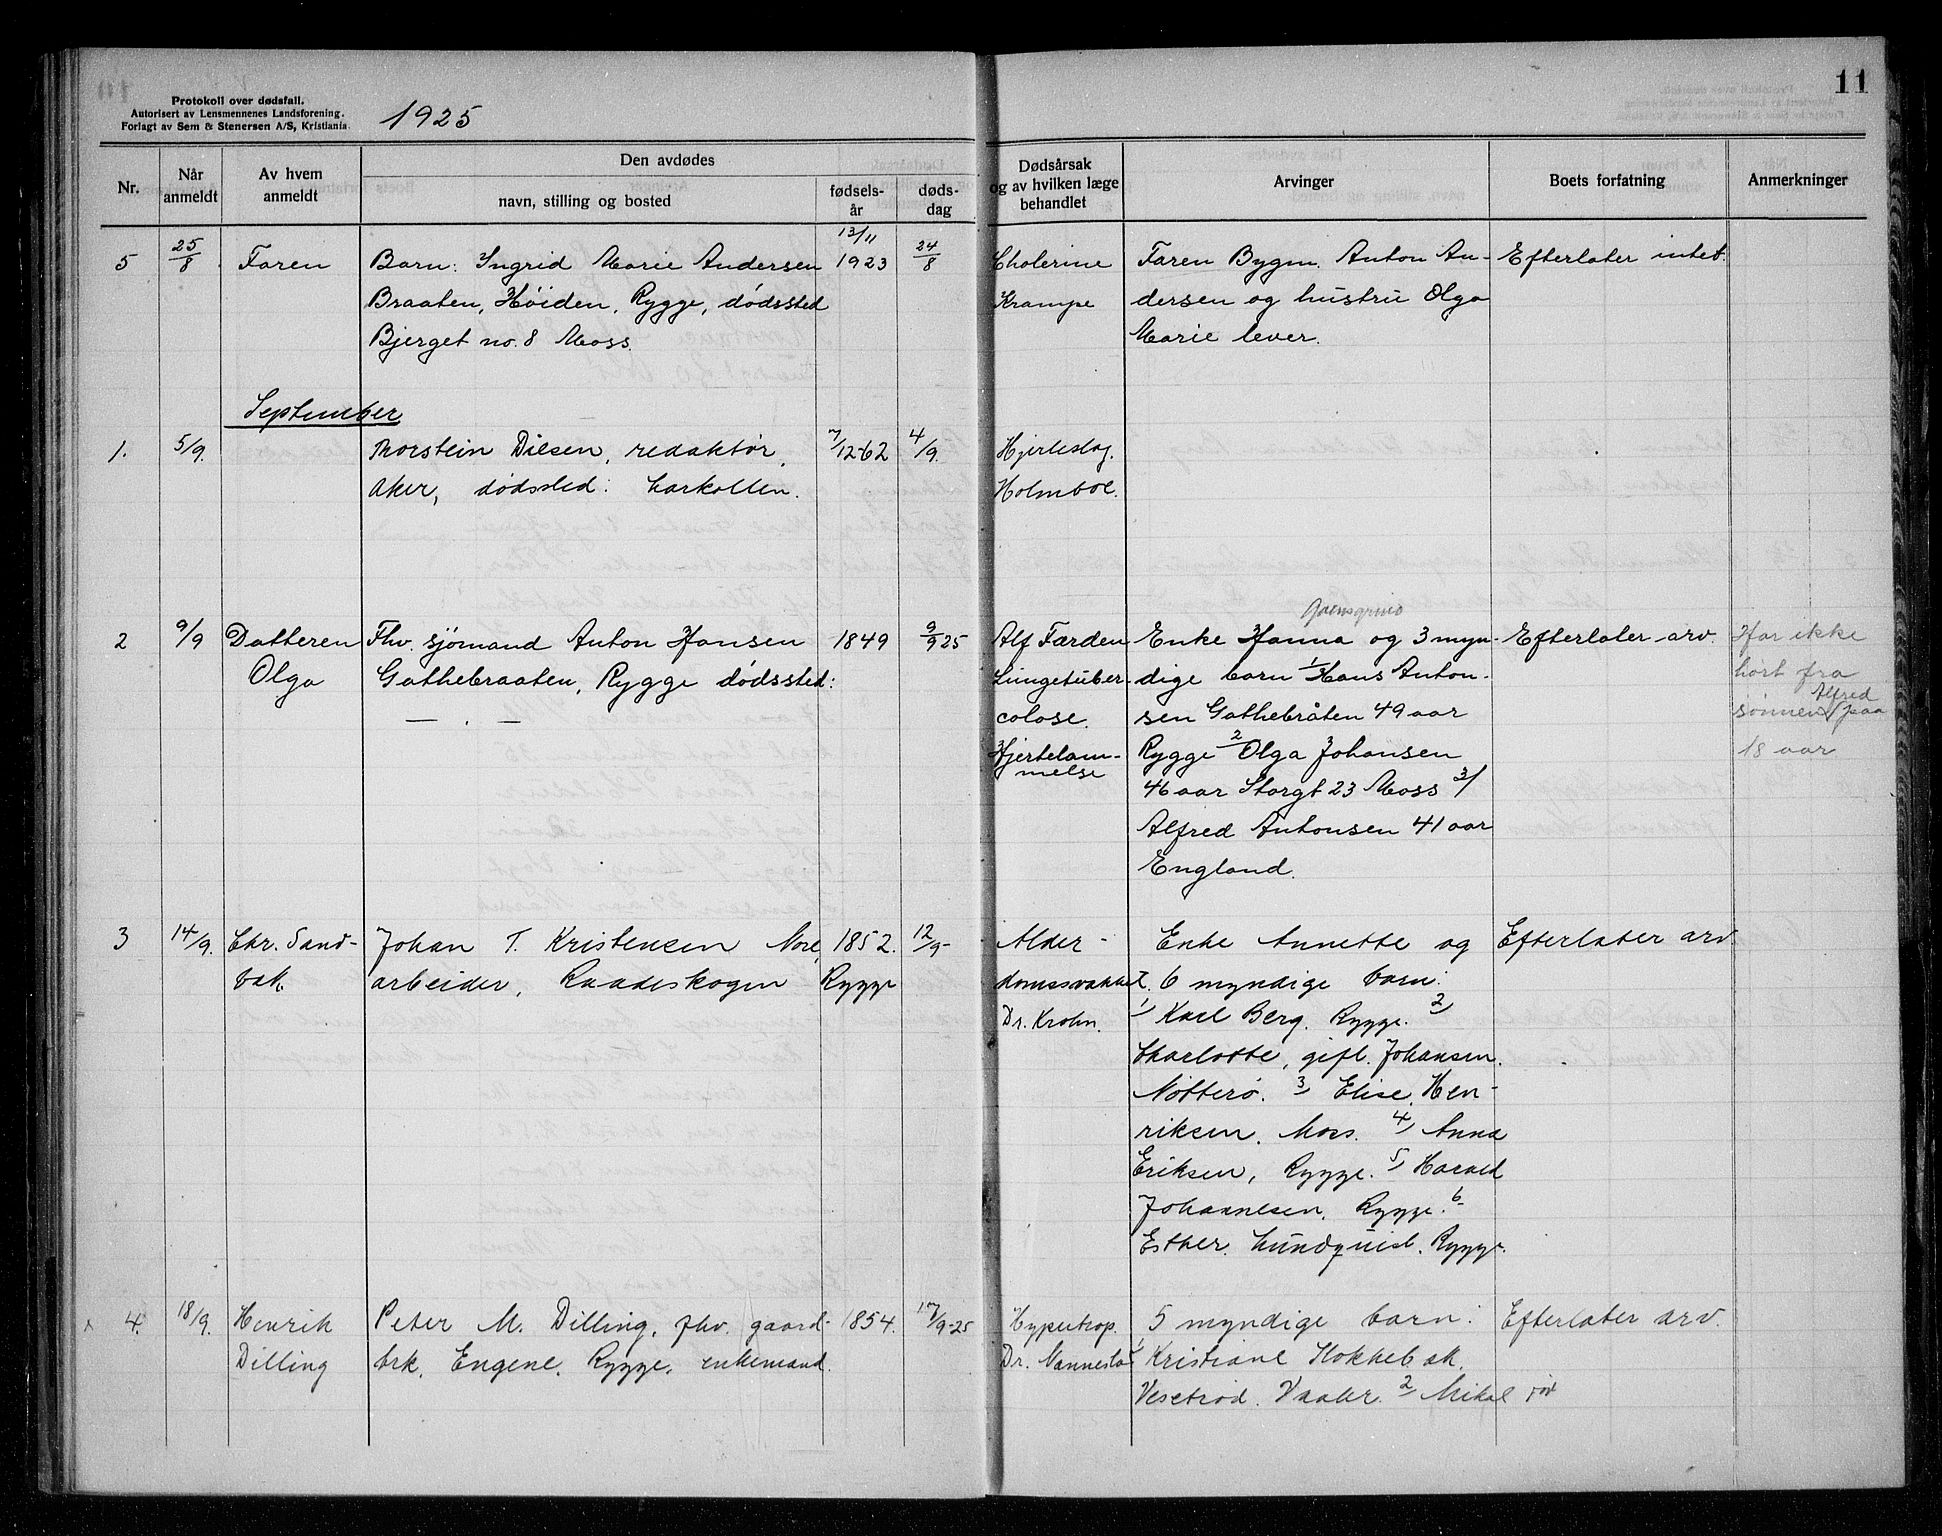 Protokoll over dødsfall.
Autorisert av Lensmennenes Landsforening.
Forlagt av Sem & Stenersen A/S, Kristiania.
1925
11
Nr.
Når anmeldt
Av hvem anmeldt
Den avdødes
navn, stilling og bosted
fødsels-år
døds-dag
Dødsårsak og av hvilken læge behandlet
Arvinger
Boets forfatning
Anmerkninger
5
25/8
Faren
Barn: Ingrid Marie Andersen
Braaten, Høiden, Rygge, dødssted
Bjerget no. 8 Moss.
13/11
1923
24/8
Cholerine
Krampe
Faren Bygm. Anton An-
dersen og hustru Olga
Marie lever.
Efterlater intet.
September
1.
5/9.
Thorstein Diesen, redaktør,
Aker, dødssted: Larkollen.
7/12-62
4/9.
Hjerteslag.
Holmboe.
2
9/9
Datteren
Olga
Fhv. sjømand Anton Hansen
Gathebraaten, Rygge dødssted:
— . —
1849
9/9 25
Alf Færden
Lungetuber-
colose.
Hjertelam-
melse
Enke Hanna og 3 myn-
dige barn 1/ Hans Anton-
sen Gathebråten 49 aar
Rygge 2 Olga Johansen
46 aar Storgt 23 Moss 3/
Alfred Antonsen 41 aar
England.
Efterlater arv.
Har ikke
hørt fra
sønnen Alfred paa
18 aar
3
14/9.
Chr. Sand-
bak.
Johan T. Kristensen Nore,
arbeider, Raadeskogen Rygge
1852.
12/9-
Alder-
domssvakhet.
Dr. Krohn.
Enke Annette og
6 myndige barn:
1/ Karl Berg. Rygge. 2/
Charlotte, gift. Johansen.
Nøtterø. 3/ Elise Hen-
riksen. Moss. 4/ Anna
Eriksen, Rygge. 5/ Harald
Johannesen, Rygge. 6-
Esther Lundquist. Rygge.
Efterlater arv
x 4.
18/9.
Henrik
Dilling
Peter M. Dilling, fhv. gaard-
brk. Engene, Rygge, enkemand.
1854.
17/9-25
Hypertrop.
Dr. Nannestad
5 myndige barn:
1/ Kristiane Hokkebak.
Vesetrød. Vaaler. 2/ Mikal
Efterlater arv.